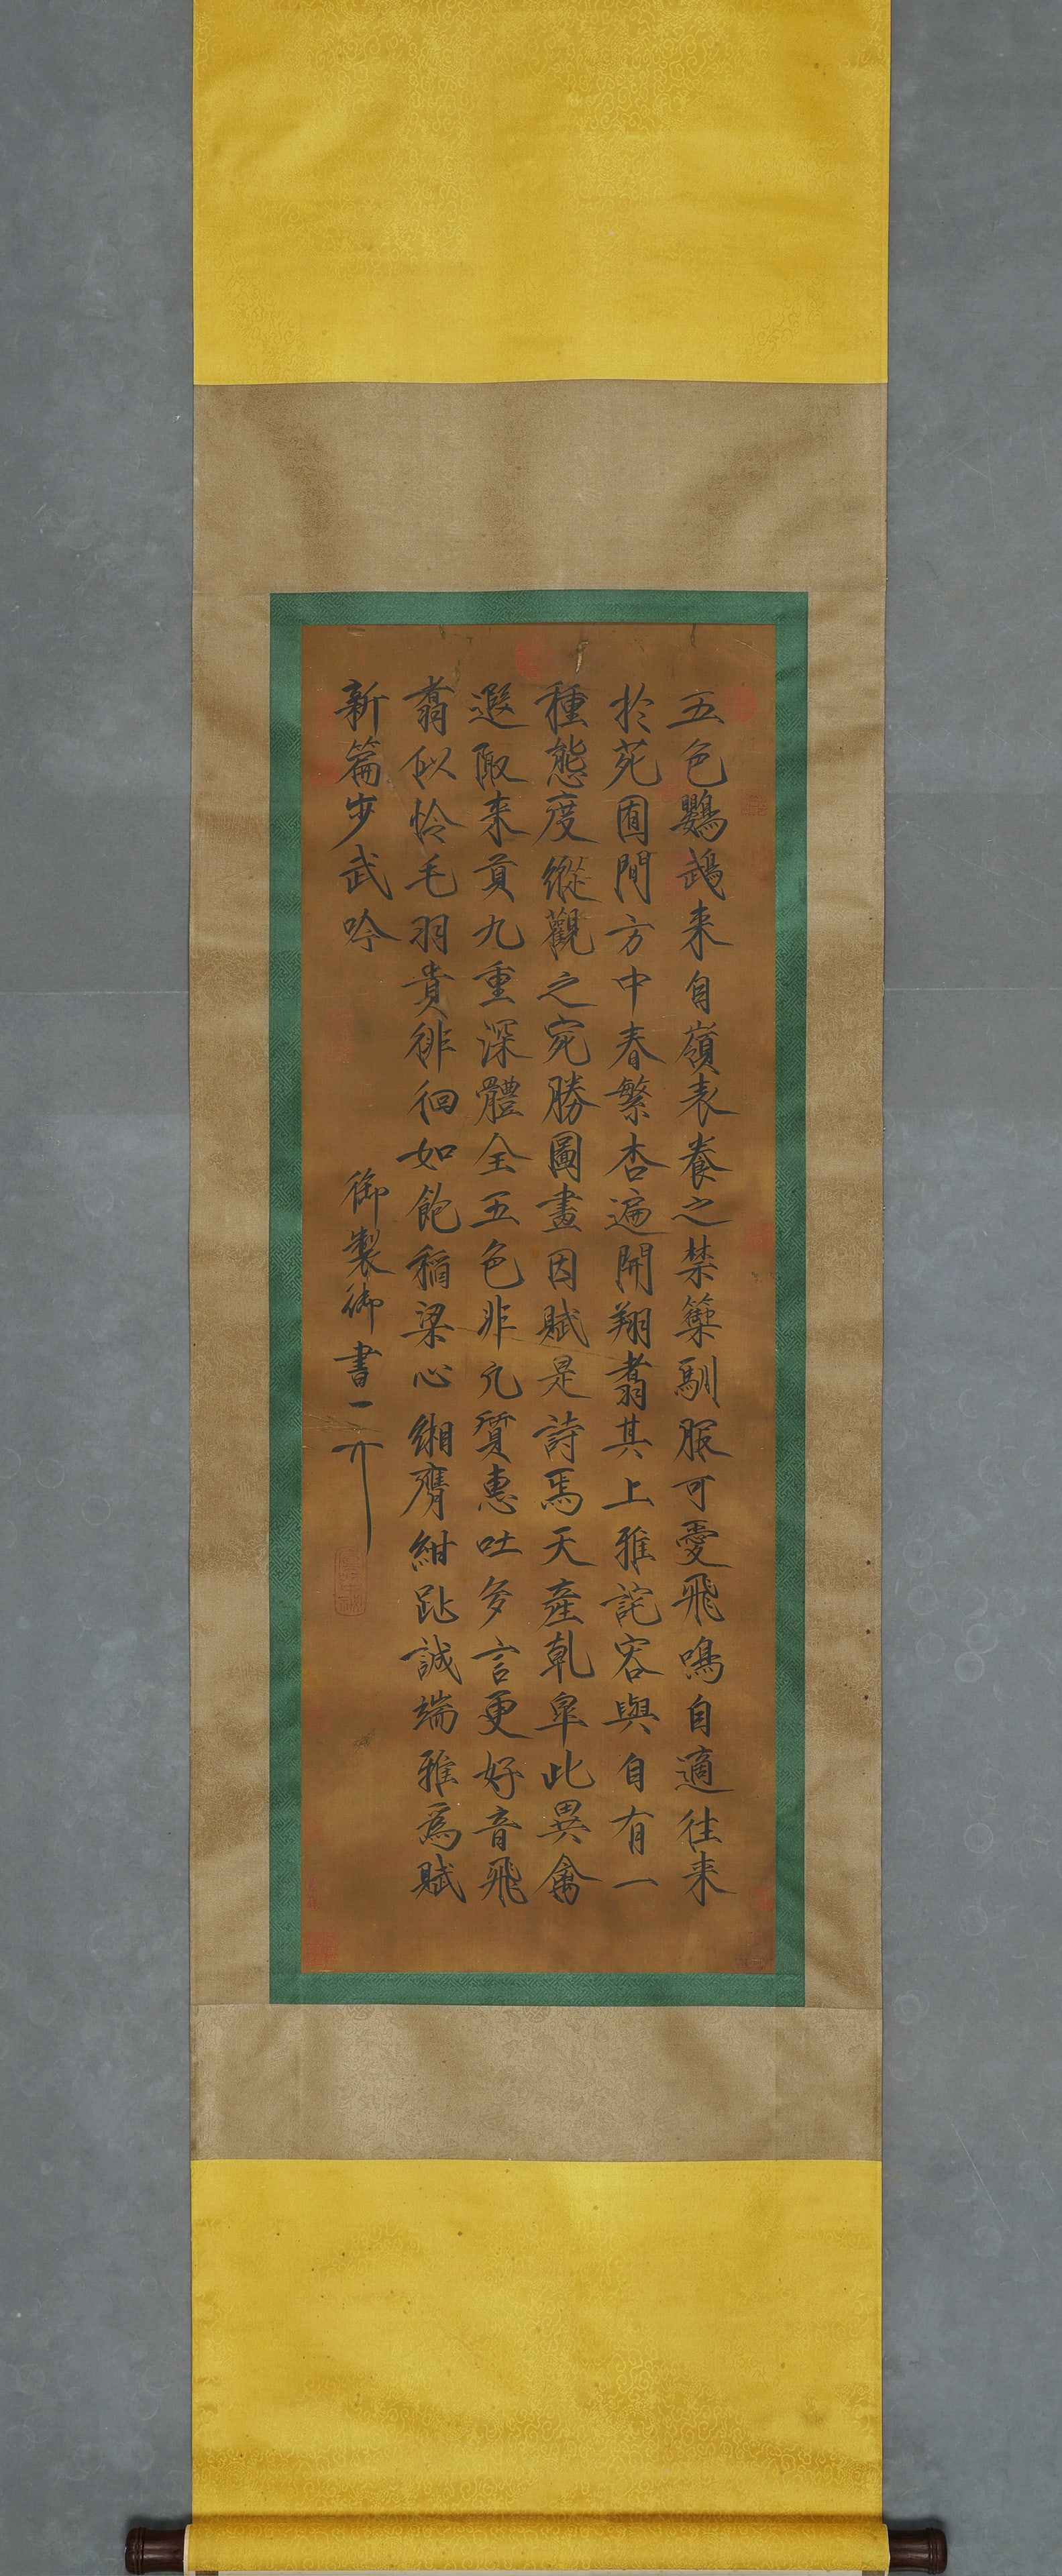 五色鸚鵡来自嶺表養之禁籞馴服可愛飛鳴自適往来
於苑囿間方中春繁杏遍開翔翥其上雅詫容與自有一
種態度縱觀之宛勝圖畫因賦是詩焉天產乾皐此異禽
遐陬来貢九重深體全五色非凢質惠吐多言更好音飛
翥似怜毛羽貴徘徊如飽稲梁心緗膺紺趾誠端雅為賦
新篇步武吟
御製御書